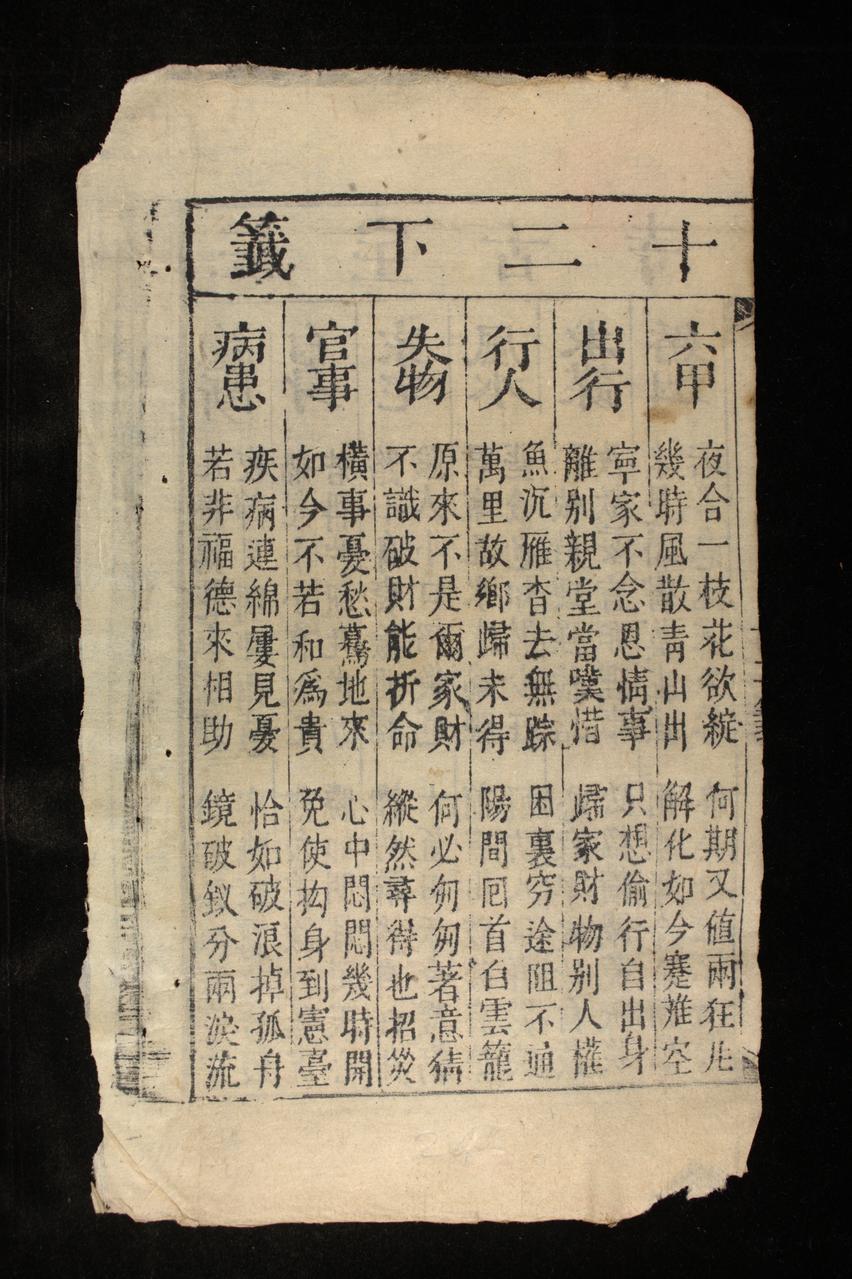 十二下籤
六甲
夜合一枝花欲綻 何期又值雨狂
幾時風散青山出 解化如今蹇难空
出行
寧家不念恩情事 只想偷行自出身
離别親堂當嘆惜 歸家財物别人權
行人
魚沉雁杳去無踪 困裏穷途阻不通
萬里故鄉歸未得 陽間囘首白雲籠
失物
原來不是爾家財 何必匆匆著意猜
不識破財能折命 縱然尋得也招災
官事
橫事憂愁驀地來 心中悶悶幾時開
如今不若和爲貴 免使拘身到憲臺
病患
疾病連綿屢見憂 恰如破浪掉孤舟
若非福德來相助 鏡破釵分兩淚流